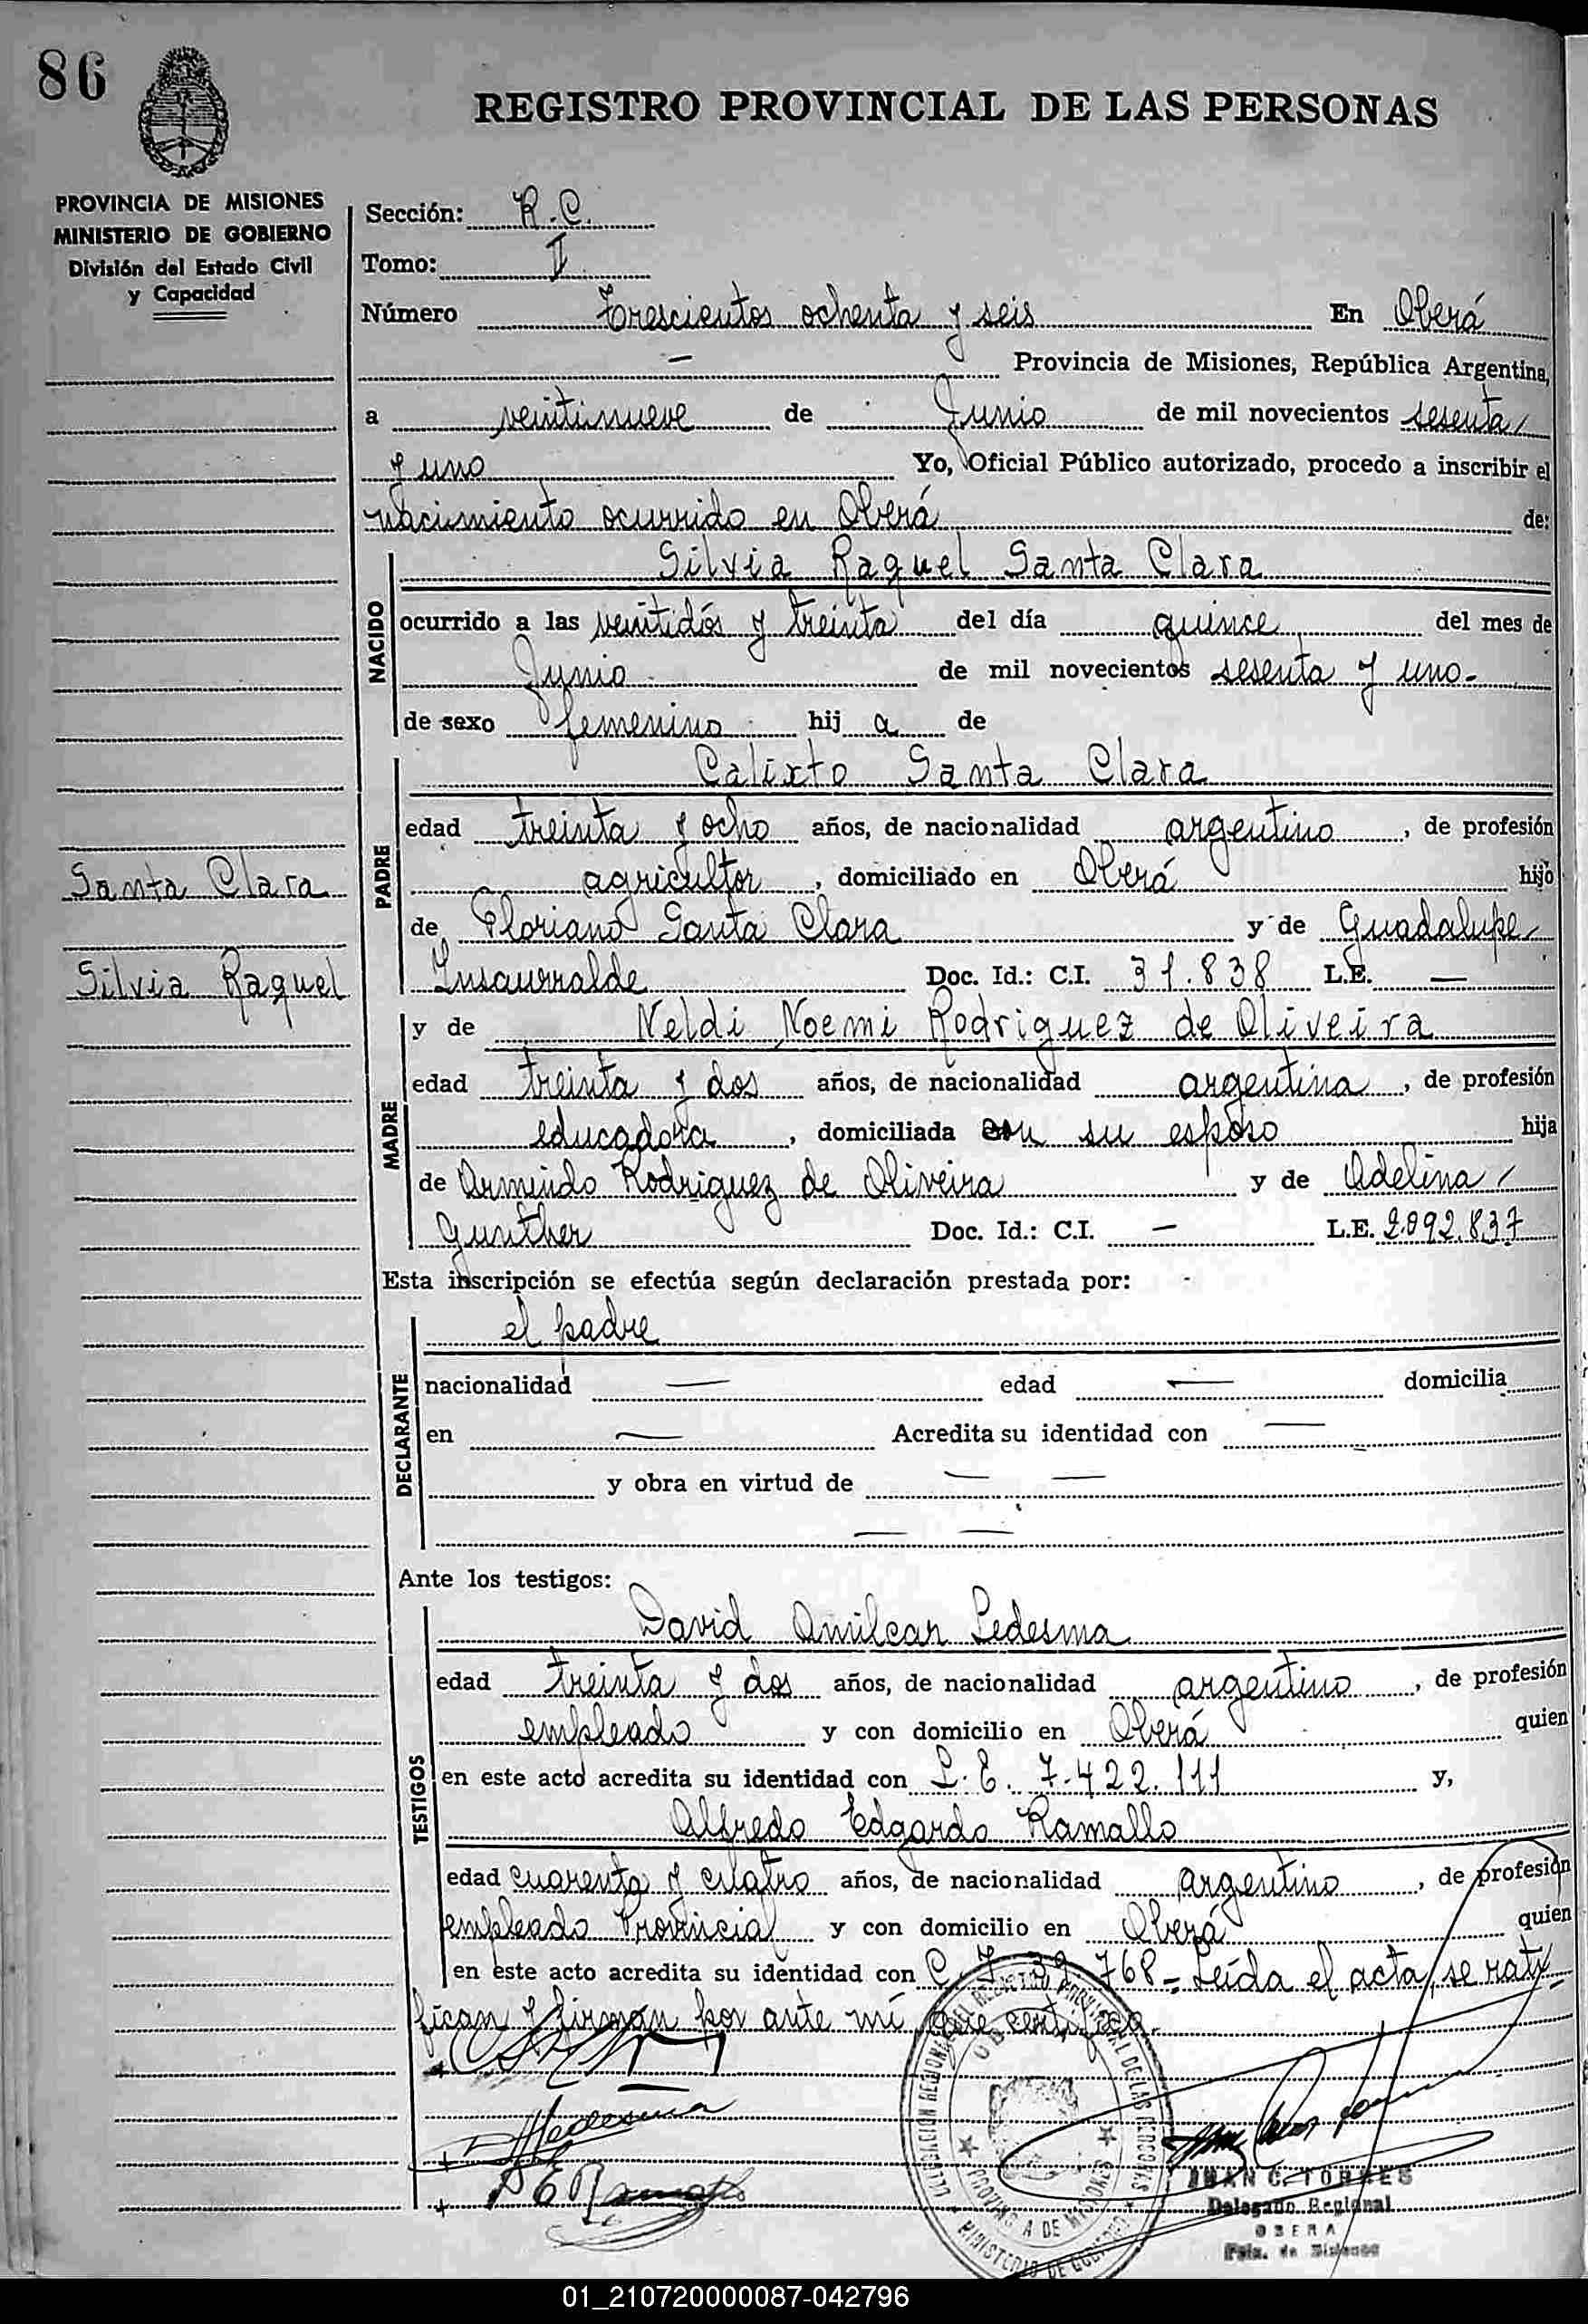 86
REGISTRO PROVINCIAL DE LAS PERSONAS
PROVINCIA DE MISIONES
MINISTERIO DE GOBIERNO
División del Estado Civil
y Capacidad
Sección: R.C.
Tomo: I
Número Trescientos ochenta y seis En Oberá
— Provincia de Misiones, República Argentina,
a veintinueve de Junio de mil novecientos sesenta
y uno Yo, Oficial Público autorizado, procedo a inscribir el
nacimiento ocurrido en Oberá de:
NACIDO
Silvia Raquel Santa Clara
ocurrido a las veintidós y treinta del día quince del mes de
Junio de mil novecientos sesenta y uno-
de sexo femenino hija de
PADRE
Calixto Santa Clara
edad treinta y ocho años, de nacionalidad argentino, de profesión
agricultor, domiciliado en Oberá hijo
de Floriano Santa Clara y de Guadalupe
Insaurralde Doc. Id.: C.I. 31.838 L.E. —
Santa Clara
Silvia Raquel
MADRE
y de Neldi Noemi Rodriguez de Oliveira
edad treinta y dos años, de nacionalidad argentina, de profesión
educadora, domiciliada con su esposo hija
de Armindo Rodriguez de Oliveira y de Adelina
Gunther Doc. Id.: C.I. — L.E. 2.092.837
Esta inscripción se efectúa según declaración prestada por:
DECLARANTE
el padre
nacionalidad — edad — domicilia
en — Acredita su identidad con —
y obra en virtud de — —
— —
Ante los testigos:
TESTIGOS
David Amilcar Ledesma
edad treinta y dos años, de nacionalidad argentino, de profesión
empleado y con domicilio en Oberá quien
en este acto acredita su identidad con L.E. 7.422.111 y,
Alfredo Edgardo Ramallo
edad cuarenta y cuatro años, de nacionalidad argentino, de profesión
empleado Provincial y con domicilio en Oberá quien
en este acto acredita su identidad con C.I. 32.768- Leída el acta, se rati
fican y firman por ante mí que certifico.
Ledesma
A E Ramallo
DELEGACION REGIONAL DEL REGISTRO PROVINCIAL DE LAS PERSONAS
PROVINCIA DE MISIONES
MINISTERIO DE GOBIERNO
JUAN C. TORRES
Delegado Regional
OBERA
Pcia. de Misiones
01_210720000087-042796